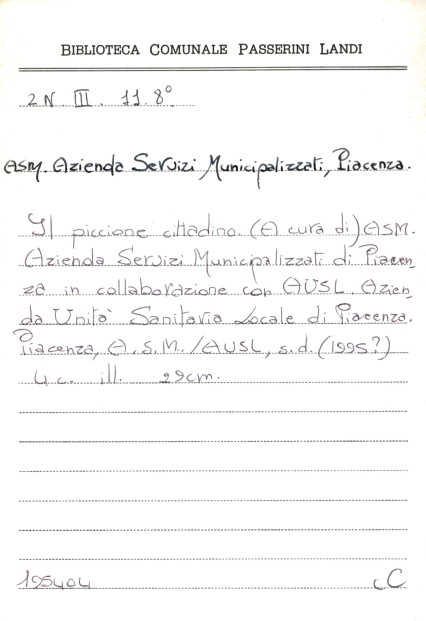 BIBLIOTECA COMUNALE PASSERINI LANDI
2N III. 11.8°
ASM. Azienda Servizi Municipalizzati, Piacenza.
Il piccione cittadino. (A cura di) ASM.
Azienda Servizi Municipalizzati di Piacen
za in collaborazione con AUSL. Azien
da Unità Sanitaria Locale di Piacenza.
Piacenza, A.S.M./AUSL, s.d. (1995?)
4 c. ill. 29cm.
195404 C